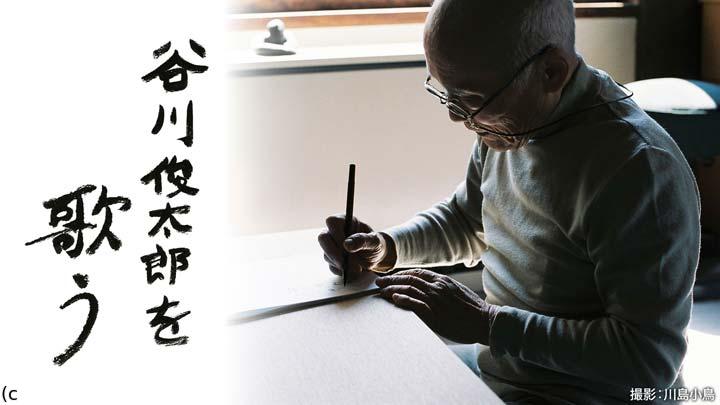 谷川俊太郎を
歌う
(c
撮影：川島小鳥